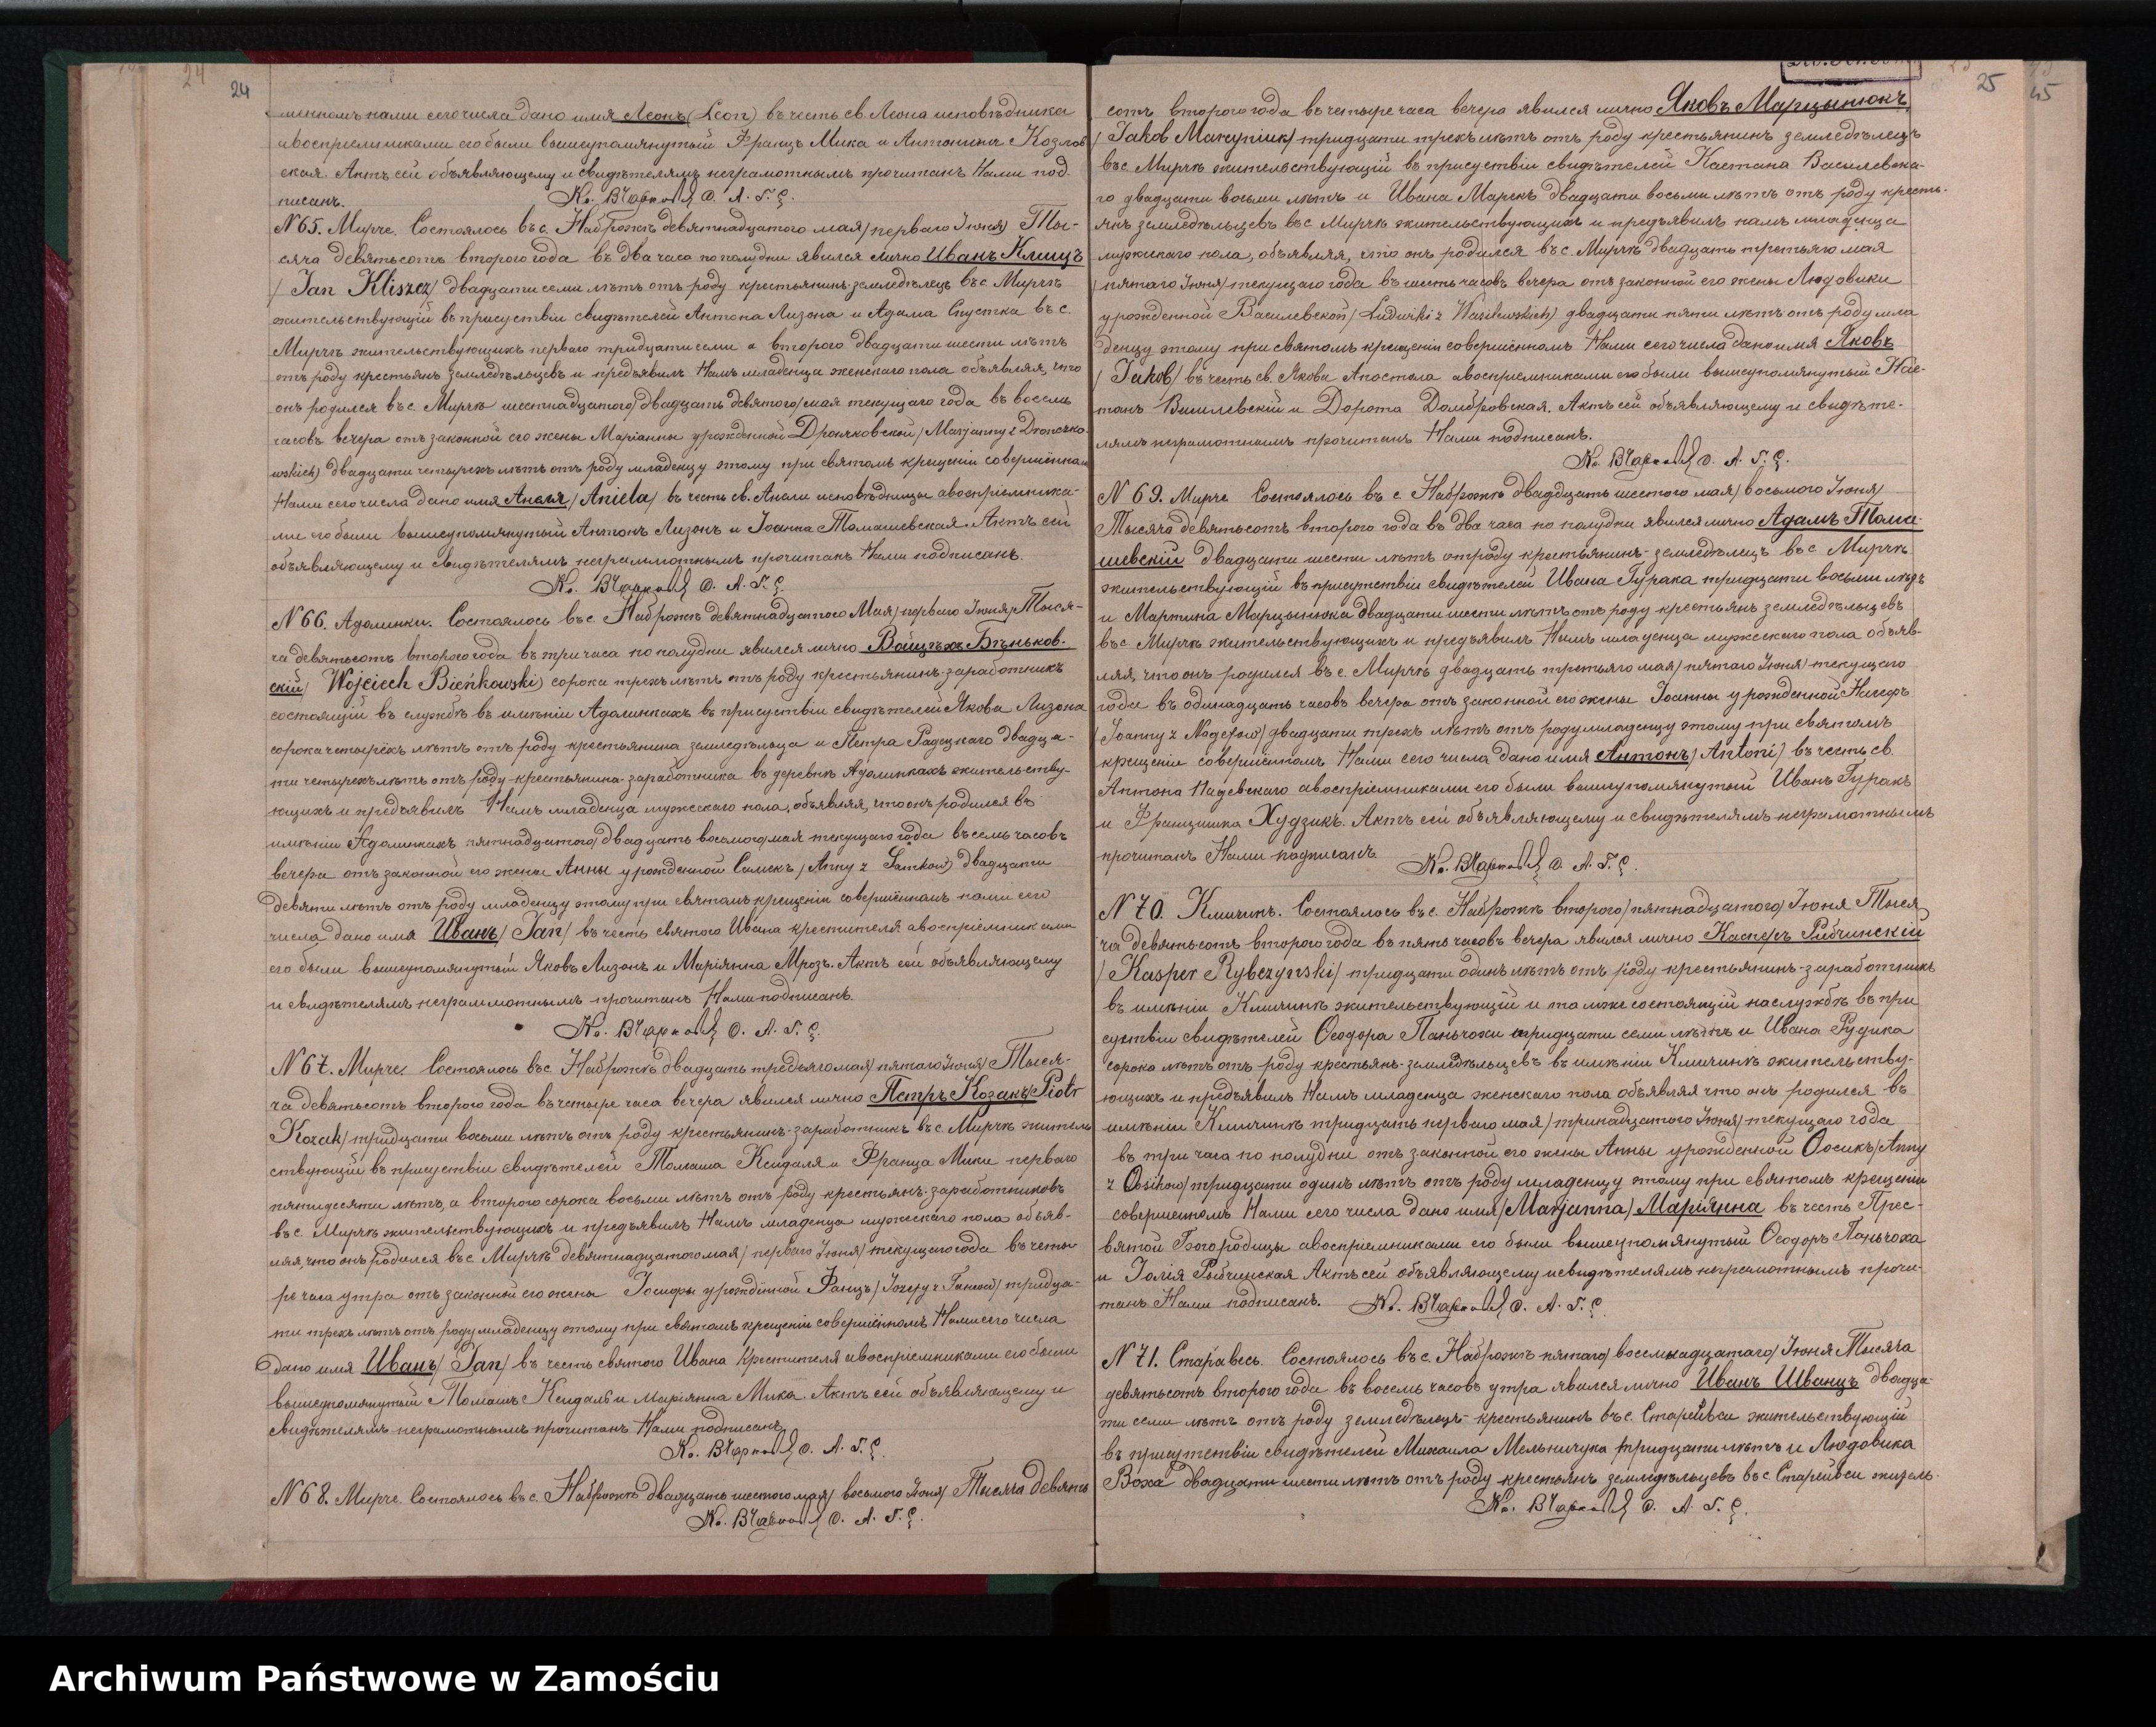 24 24
менномъ нами сего числа дано имя Леонъ (Leon) въ честь св. Леона исповѣдника
авоспріемниками его были вышеупомянутый Францъ Мика и Антонина Козлов
ская. Актъ сей объявляющему и свидѣтелямъ неграмотнымъ прочитанъ Нами под
писанъ.
N 65. Мирче. Состоялось въ с. Наброжѣ девятнадцатого мая/перваго Іюня/ Ты-
сяча девятьсотъ второго года въ два часа пополудни явился лично Иванъ Клищъ
/Jan Kliszcz/ двадцати семи лѣтъ отъ роду крестьянинъ-земледѣлецъ въ с. Мирчѣ
жительствующій въ присутствіи свидѣтелей Антона Лизона и Адама Спустка въ с.
Мирчѣ жительствующихъ перваго тридцати семи а второго двадцати шести лѣтъ
отъ роду крестьянъ земледѣльцевъ и предъявилъ Намъ младенца женскаго пола объявляя, что
онъ родился въ с. Мирчѣ шестнадцатого/двадцать девятого/мая текущаго года въ восемь
часовъ вечера отъ законной его жены Маріанны урожденной Дрончковской/Marjanny z Dronczko-
wskich) двадцати четырехъ лѣтъ отъ роду младенцу этому при святомъ крещеніи совершённомъ
Нами сего числа дано имя Анеля/Aniela/ въ честь св. Анели исповѣдницы авоспріемника-
ми его были вышеупомянутый Антонъ Лизонъ и Іоанна Томашевская. Актъ сей
объявляющему и свидѣтелямъ неграммотнымъ прочитанъ Нами подписанъ.
N 66. Адолинки. Состоялось въ с. Наброжѣ девятнадцатого Мая/перваго Іюня/ Тыся-
ча девятьсотъ второго года въ три часа пополудни явился лично Войцѣхъ Бѣньков-
скій/Wojciech Bieńkowski) сорока трехъ лѣтъ отъ роду крестьянинъ-заработникъ
состоящій въ службѣ въ имѣніи Адолинкахъ въ присутствіи свидѣтелей Якова Лизона
сорока четырёхъ лѣтъ отъ роду крестьянина земледѣльца и Петра Радецкаго двадца-
ти четырехъ лѣтъ отъ роду-крестьянина-заработника въ деревнѣ Адолинкахъ жительству-
ющихъ и предъявилъ Намъ младенца мужескаго пола, объявляя, что онъ родился въ
имѣніи Адолинкахъ пятнадцатого/двадцать восьмого мая текущаго года въ семь часовъ
вечера отъ законной его жены Анны урожденной Самекъ/Anny z Samków) двадцати
девяти лѣтъ отъ роду младенцу этому при святомъ крещеніи совершённомъ нами сего
числа дано имя Иванъ/Jan/ въ честь святого Ивана крестителя авоспріемниками
его были вышеупомянутый Яковъ Лизонъ и Маріянна Мрозъ. Актъ сей объявляющему
и свидѣтелямъ неграммотнымъ прочитанъ Нами подписанъ.
N 67. Мирче. Состоялось въ с. Наброжѣ двадцать третьяго мая/пятаго Іюня/ Тыся-
ча девятьсотъ второго года въ четыре часа вечера явился лично Петръ Козакъ/Piotr
Kozak/ тридцати восьми лѣтъ отъ роду крестьянинъ-заработникъ въ с. Мирчѣ житель
ствующій въ присутствіи свидѣтелей Томаша Кендаля и Франца Мики перваго
пятидесяти лѣтъ, а второго сорока восьми лѣтъ отъ роду крестьянъ-заработниковъ
въ с. Мирчѣ жительствующихъ и предъявилъ Намъ младенца мужескаго пола объяв-
ляя, что онъ родился въ с. Мирчѣ девятнадцатого мая/перваго Іюня/ текущаго года въ четы
ре часа утра отъ законной его жены Іосифы урождённой Ганцъ/Józefy z Ganców/ тридца-
ти трехъ лѣтъ отъ роду младенцу этому при святомъ крещеніи совершённомъ Нами сего числа
дано имя Иванъ/Jan/ въ честь святого Ивана Крестителя авоспріемниками его были
вышеупомянутый Томашъ Кендаль и Маріянна Мика. Актъ сей объявляющему и
свидѣтелямъ неграмотнымъ прочитанъ Нами подписанъ
N 68. Мирче. Состоялось въ с. Наброжѣ двадцать шестого мая/восьмого Іюня/ Тысяча девять
25 45
сотъ второго года въ четыре часа вечера явился лично Яковъ Марцынюкъ
/Jakob Marcyniuk/ тридцати трехъ лѣтъ отъ роду крестьянинъ земледѣлецъ
въ с. Мирчѣ жительствующій въ присутствіи свидѣтелей Каетана Василевска-
го двадцати восьми лѣтъ и Ивана Марекъ двадцати восьми лѣтъ отъ роду кресть-
янъ земледѣльцевъ въ с. Мирчѣ жительствующихъ и предъявилъ намъ младенца
мужскаго пола, объявляя, что онъ родился въ с. Мирчѣ двадцать третьяго мая
/пятаго Іюня/ текущаго года въ шесть часовъ вечера отъ законной его жены Людовики
урожденной Василевской/Ludwiki z Wasilewskich) двадцати пяти лѣтъ отъ роду мла
денцу этому при святомъ крещеніи совершённомъ Нами сего числа дано имя Яковъ
/Jakob/ въ честь св. Якова Апостола авоспріемниками его были вышеупомянутый Кае-
танъ Василевскій и Дорота Домбровская. Актъ сей объявляющему и свидѣте-
лямъ неграмотнымъ прочитанъ Нами подписанъ.
N 69. Мирче Состоялось въ с. Наброжѣ двадцать шестого мая/восьмого Іюня/
Тысяча девятьсотъ второго года въ два часа по полудни явился лично Адамъ Тома-
шевскій двадцати шести лѣтъ отроду крестьянинъ-земледѣлецъ въ с. Мирчѣ
жительствующій въ присутствіи свидѣтелей Ивана Гурака тридцати восьми лѣтъ
и Мартина Марцынюка двадцати шести лѣтъ отъ роду крестьянъ земледѣльцевъ
въ с. Мирчѣ жительствующихъ и предъявилъ Намъ младенца мужескаго пола объяв-
ляя, что онъ родился въ с. Мирчѣ двадцать третьяго мая/пятаго Іюня/ текущаго
года въ одинадцать часовъ вечера отъ законной его жены Іоанны урожденной
/Joanny z двадцати трехъ лѣтъ отъ роду младенцу этому при святомъ
крещеніи совершённомъ Нами сего числа дано имя Антонъ/Antoni/ въ честь св.
Антона Падевскаго авоспріемниками его были вышеупомянутый Иванъ Гуракъ
и Францишка Худзикъ. Актъ сей объявляющему и свидѣтелямъ неграмотнымъ
прочитанъ Нами подписанъ
N 70. Кмичинъ. Состоялось въ с. Наброжѣ второго/пятнадцатого/ Іюня Тыся
ча девятьсотъ второго года въ пять часовъ вечера явился лично Касперъ Рыбчинскій
/Kasper Rybczynski/ тридцати одинъ лѣтъ отъ роду крестьянинъ-заработникъ
въ имѣніи Кмичинѣ жительствующій и тамже состоящій на службѣ въ при
сутствіи свидѣтелей Ѳеодора Паньчохи тридцати семи лѣтъ и Ивана Рудика
сорока лѣтъ отъ роду крестьянъ-земледѣльцевъ въ имѣніи Кмичинѣ жительству-
ющихъ и предъявилъ Намъ младенца женскаго пола объявляя что онъ родился въ
имѣніи Кмичинѣ тридцать перваго мая/тринадцатого Іюня/ текущаго года
въ три часа по полудни отъ законной его жены Анны урожденной Осикъ/Anny
z Osików/ тридцати одинъ лѣтъ отъ роду младенцу этому при святомъ крещеніи
совершенномъ Нами сего числа дано имя/Marjanna/ Маріянна въ честь Прес-
вятой Богородицы авоспріемниками его были вышеупомянутый Ѳеодоръ Паньчоха
и Юлія Рыбчинская Актъ сей объявляющему и свидѣтелямъ неграмотнымъ прочи-
танъ Нами подписанъ.
N 71. Старавесь. Состоялось въ с. Наброжѣ пятаго/восемнадцатаго/ Іюня Тысяча
девятьсотъ второго года въ восемь часовъ утра явился лично Иванъ Шванцъ двадца-
ти семи лѣтъ отъ роду земледѣлецъ-крестьянинъ въ с. Старейвси жительствующій
въ присутствіи свидѣтелей Михаила Мельничука тридцати лѣтъ и Людовика
Воха двадцати шести лѣтъ отъ роду крестьянъ земледѣльцевъ въ с. Старейвси житель-
Archiwum Państwowe w Zamościu